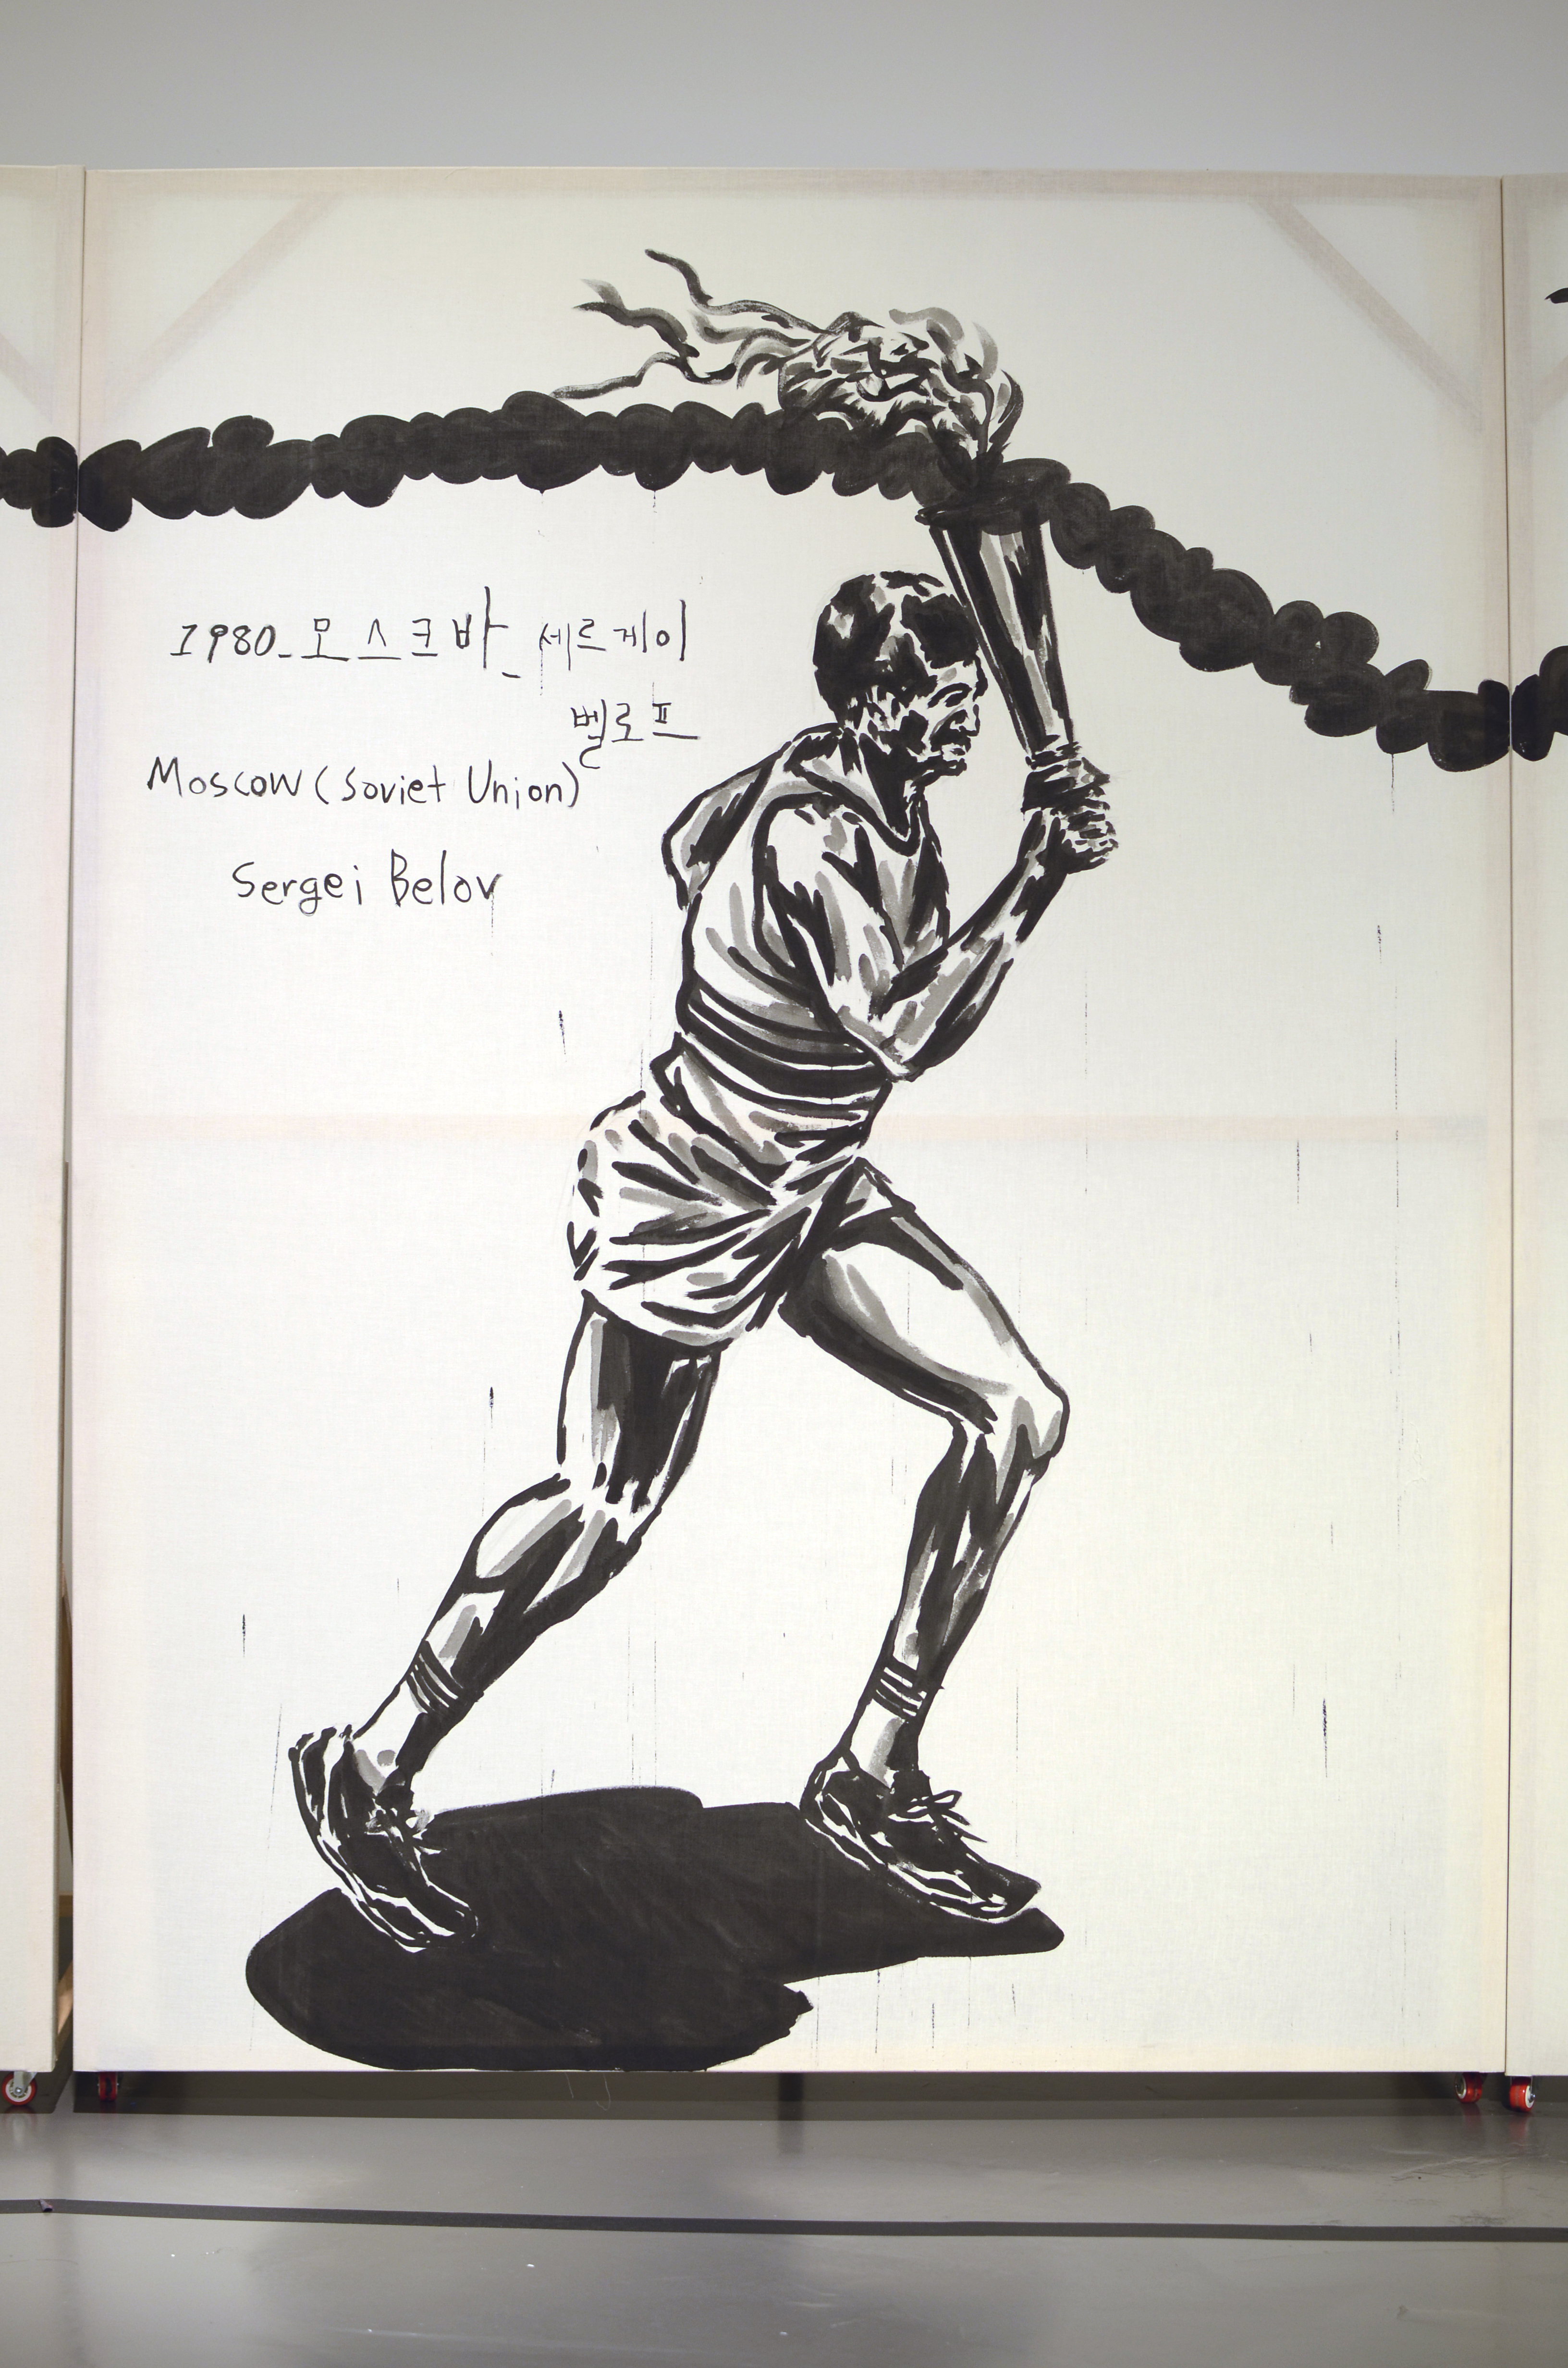 1980_모스크바_세르게이
벨로프
Moscow (Soviet Union)
Sergei Belov